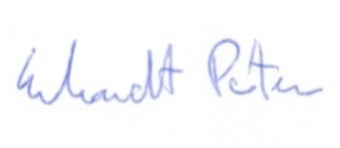 Erhardt Peter